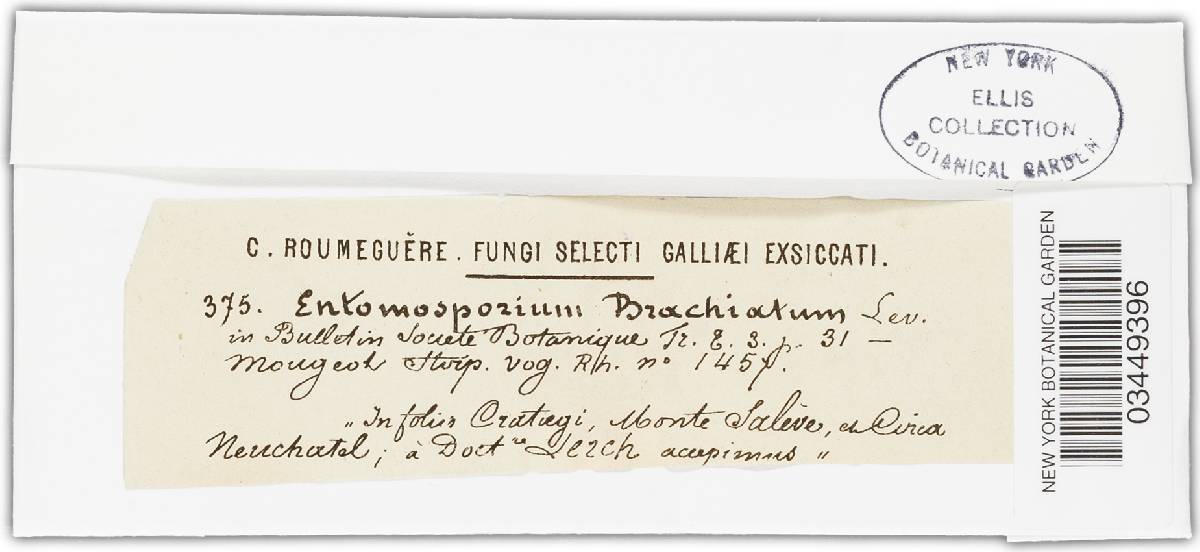 NEW YORK
ELLIS
COLLECTION
BOTANICAL GARDEN
C. ROUMEGUĚRE. FUNGI SELECTI GALLIÆI EXSICCATI.
375. Entomosporium Brachiatum Lev.
in Bulletin Societe Botanique Fr. T. 3. p. 31 –
Mougeot Stirp. vog. Rh. nº 1457.
„ In foliis Cratægi, Monte Salève, et Circa
Neuchatel; à Doct re Lerch accepimus „
NEW YORK BOTANICAL GARDEN
03449396